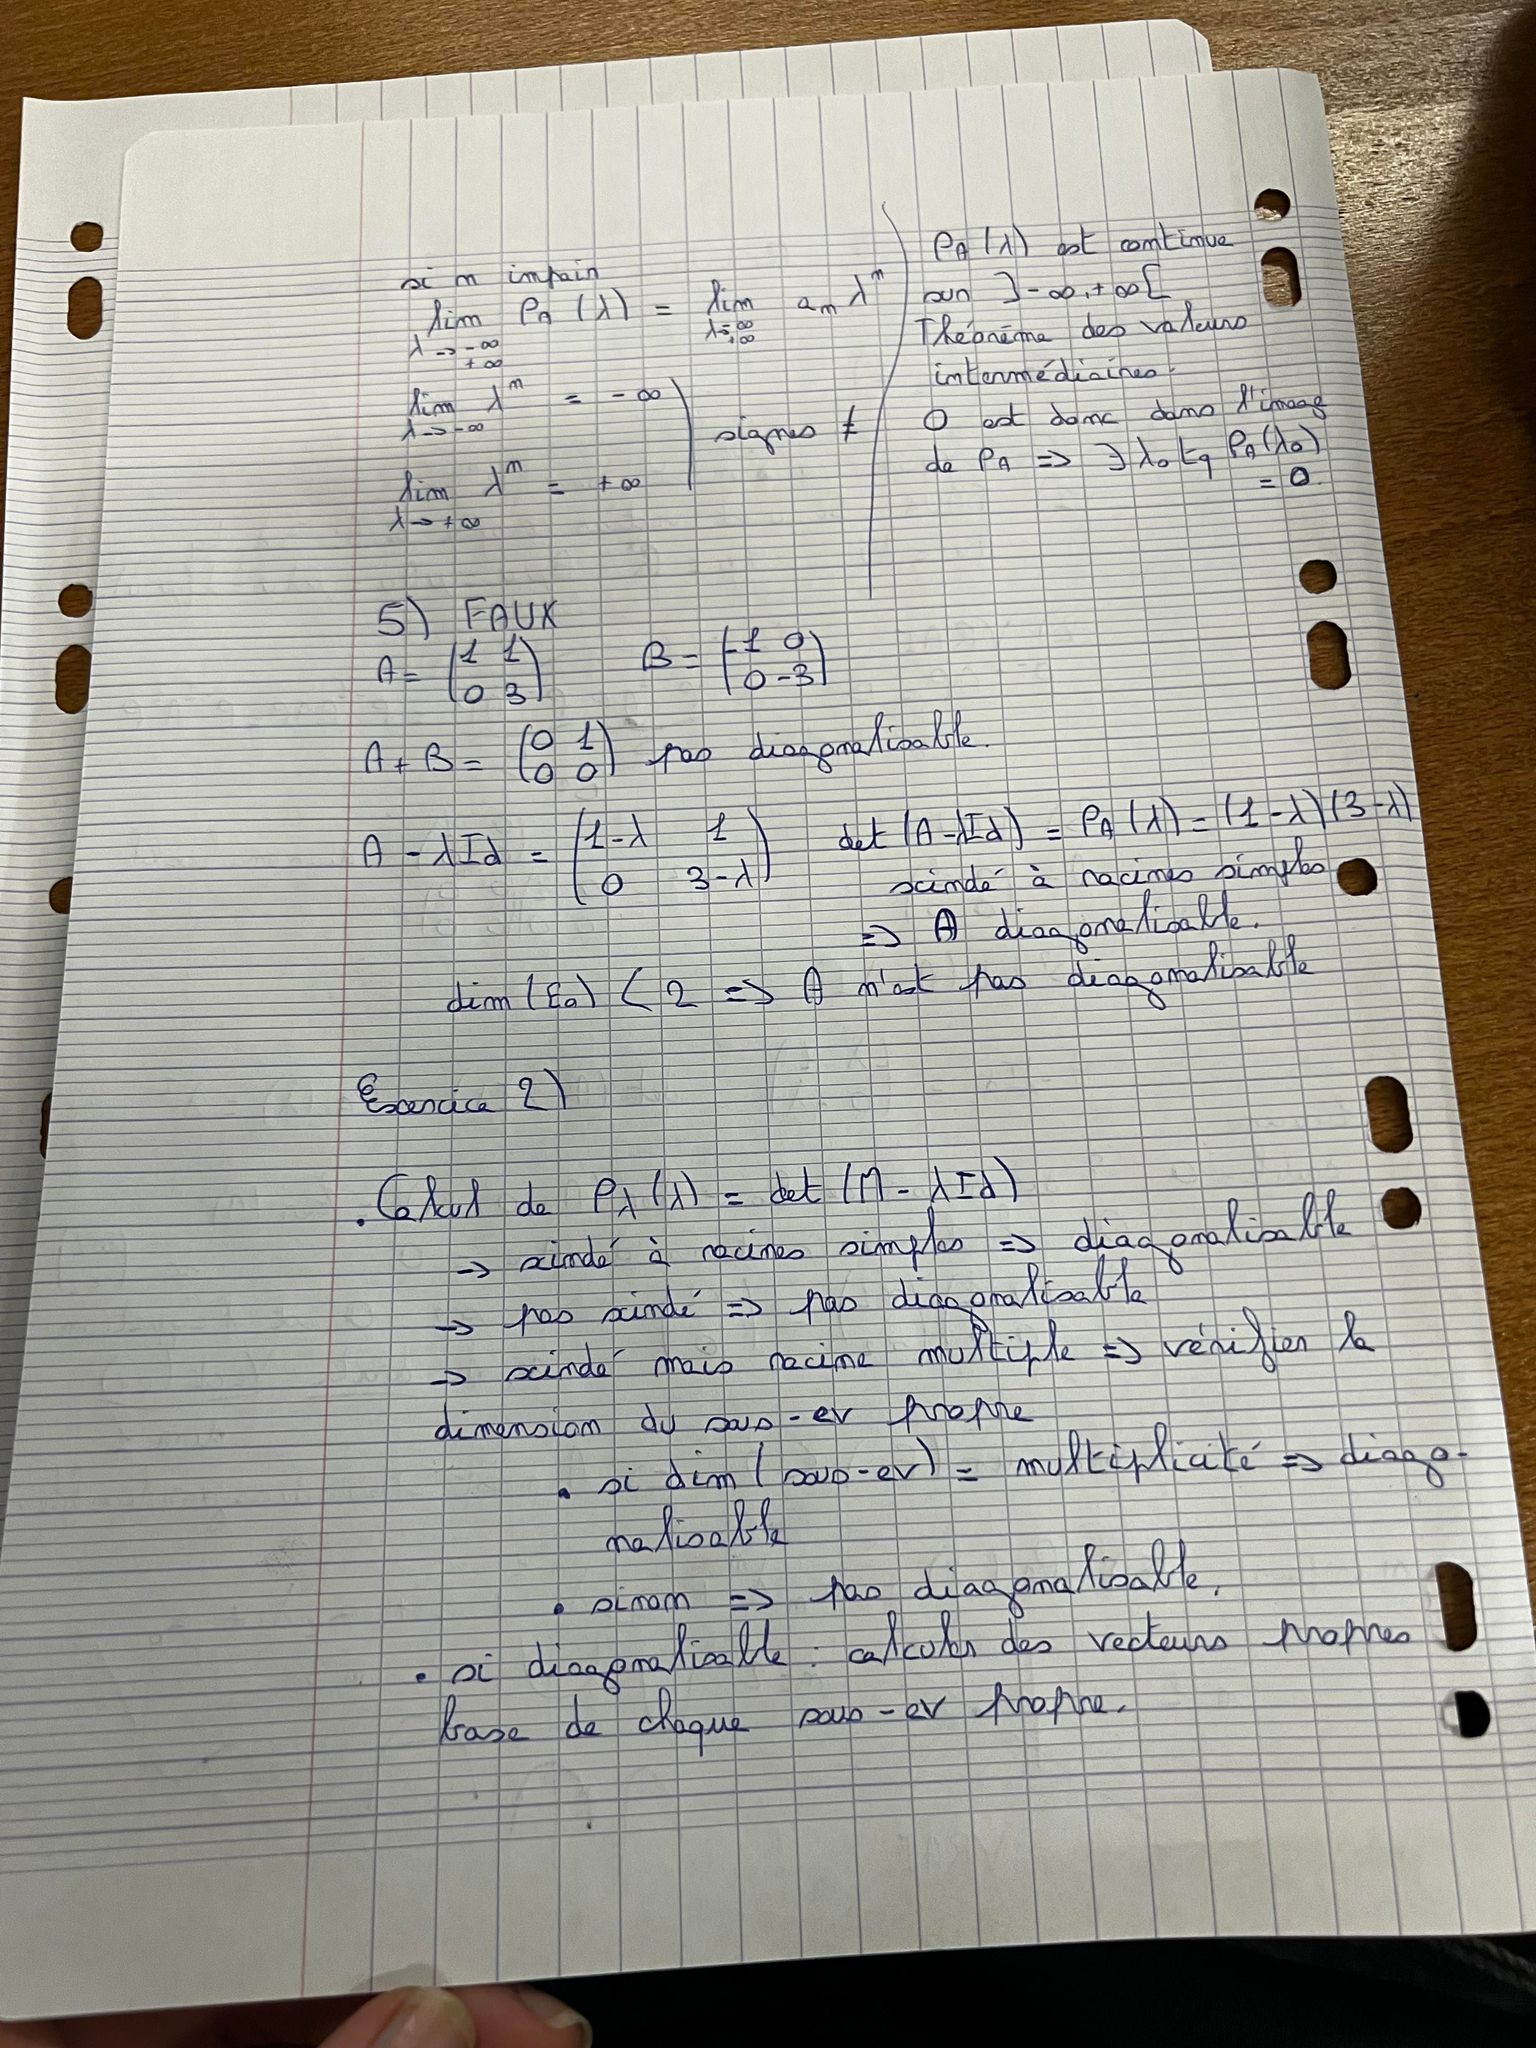 si n impair
lim P_A (λ) = lim a_n λ^n
λ→-∞ λ→-∞
+∞ +∞
lim λ^n = -∞
λ→-∞
signes ≠
lim λ^n = +∞
λ→+∞
P_A (λ) est continue
sur ]-∞,+∞[
Théorème des valeurs
intermédiaires.
0 est donc dans l'image
de P_A => ∃ λ_0 tq P_A(λ_0)
= 0.
5) FAUX
A = (1 1 B = (-1 0
0 3) 0 -3)
A + B = (0 1
0 0) pas diagonalisable.
A - λId = (1-λ 1 det (A-λId) = P_A (λ) = (1-λ)(3-λ)
0 3-λ) scindé à racines simples
=> A diagonalisable.
dim (E_0) < 2 => A n'est pas diagonalisable
Exercice 2)
. Calcul de P_λ (λ) = det (M - λId)
→ scindé à racines simples => diagonalisable
→ pas scindé => pas diagonalisable
→ scindé mais racine multiple => vérifier la
dimension du sous-ev propre
. si dim (sous-ev) = multiplicité => diago-
nalisable
. sinon => pas diagonalisable.
. si diagonalisable : calculer des vecteurs propres
base de chaque sous-ev propre.